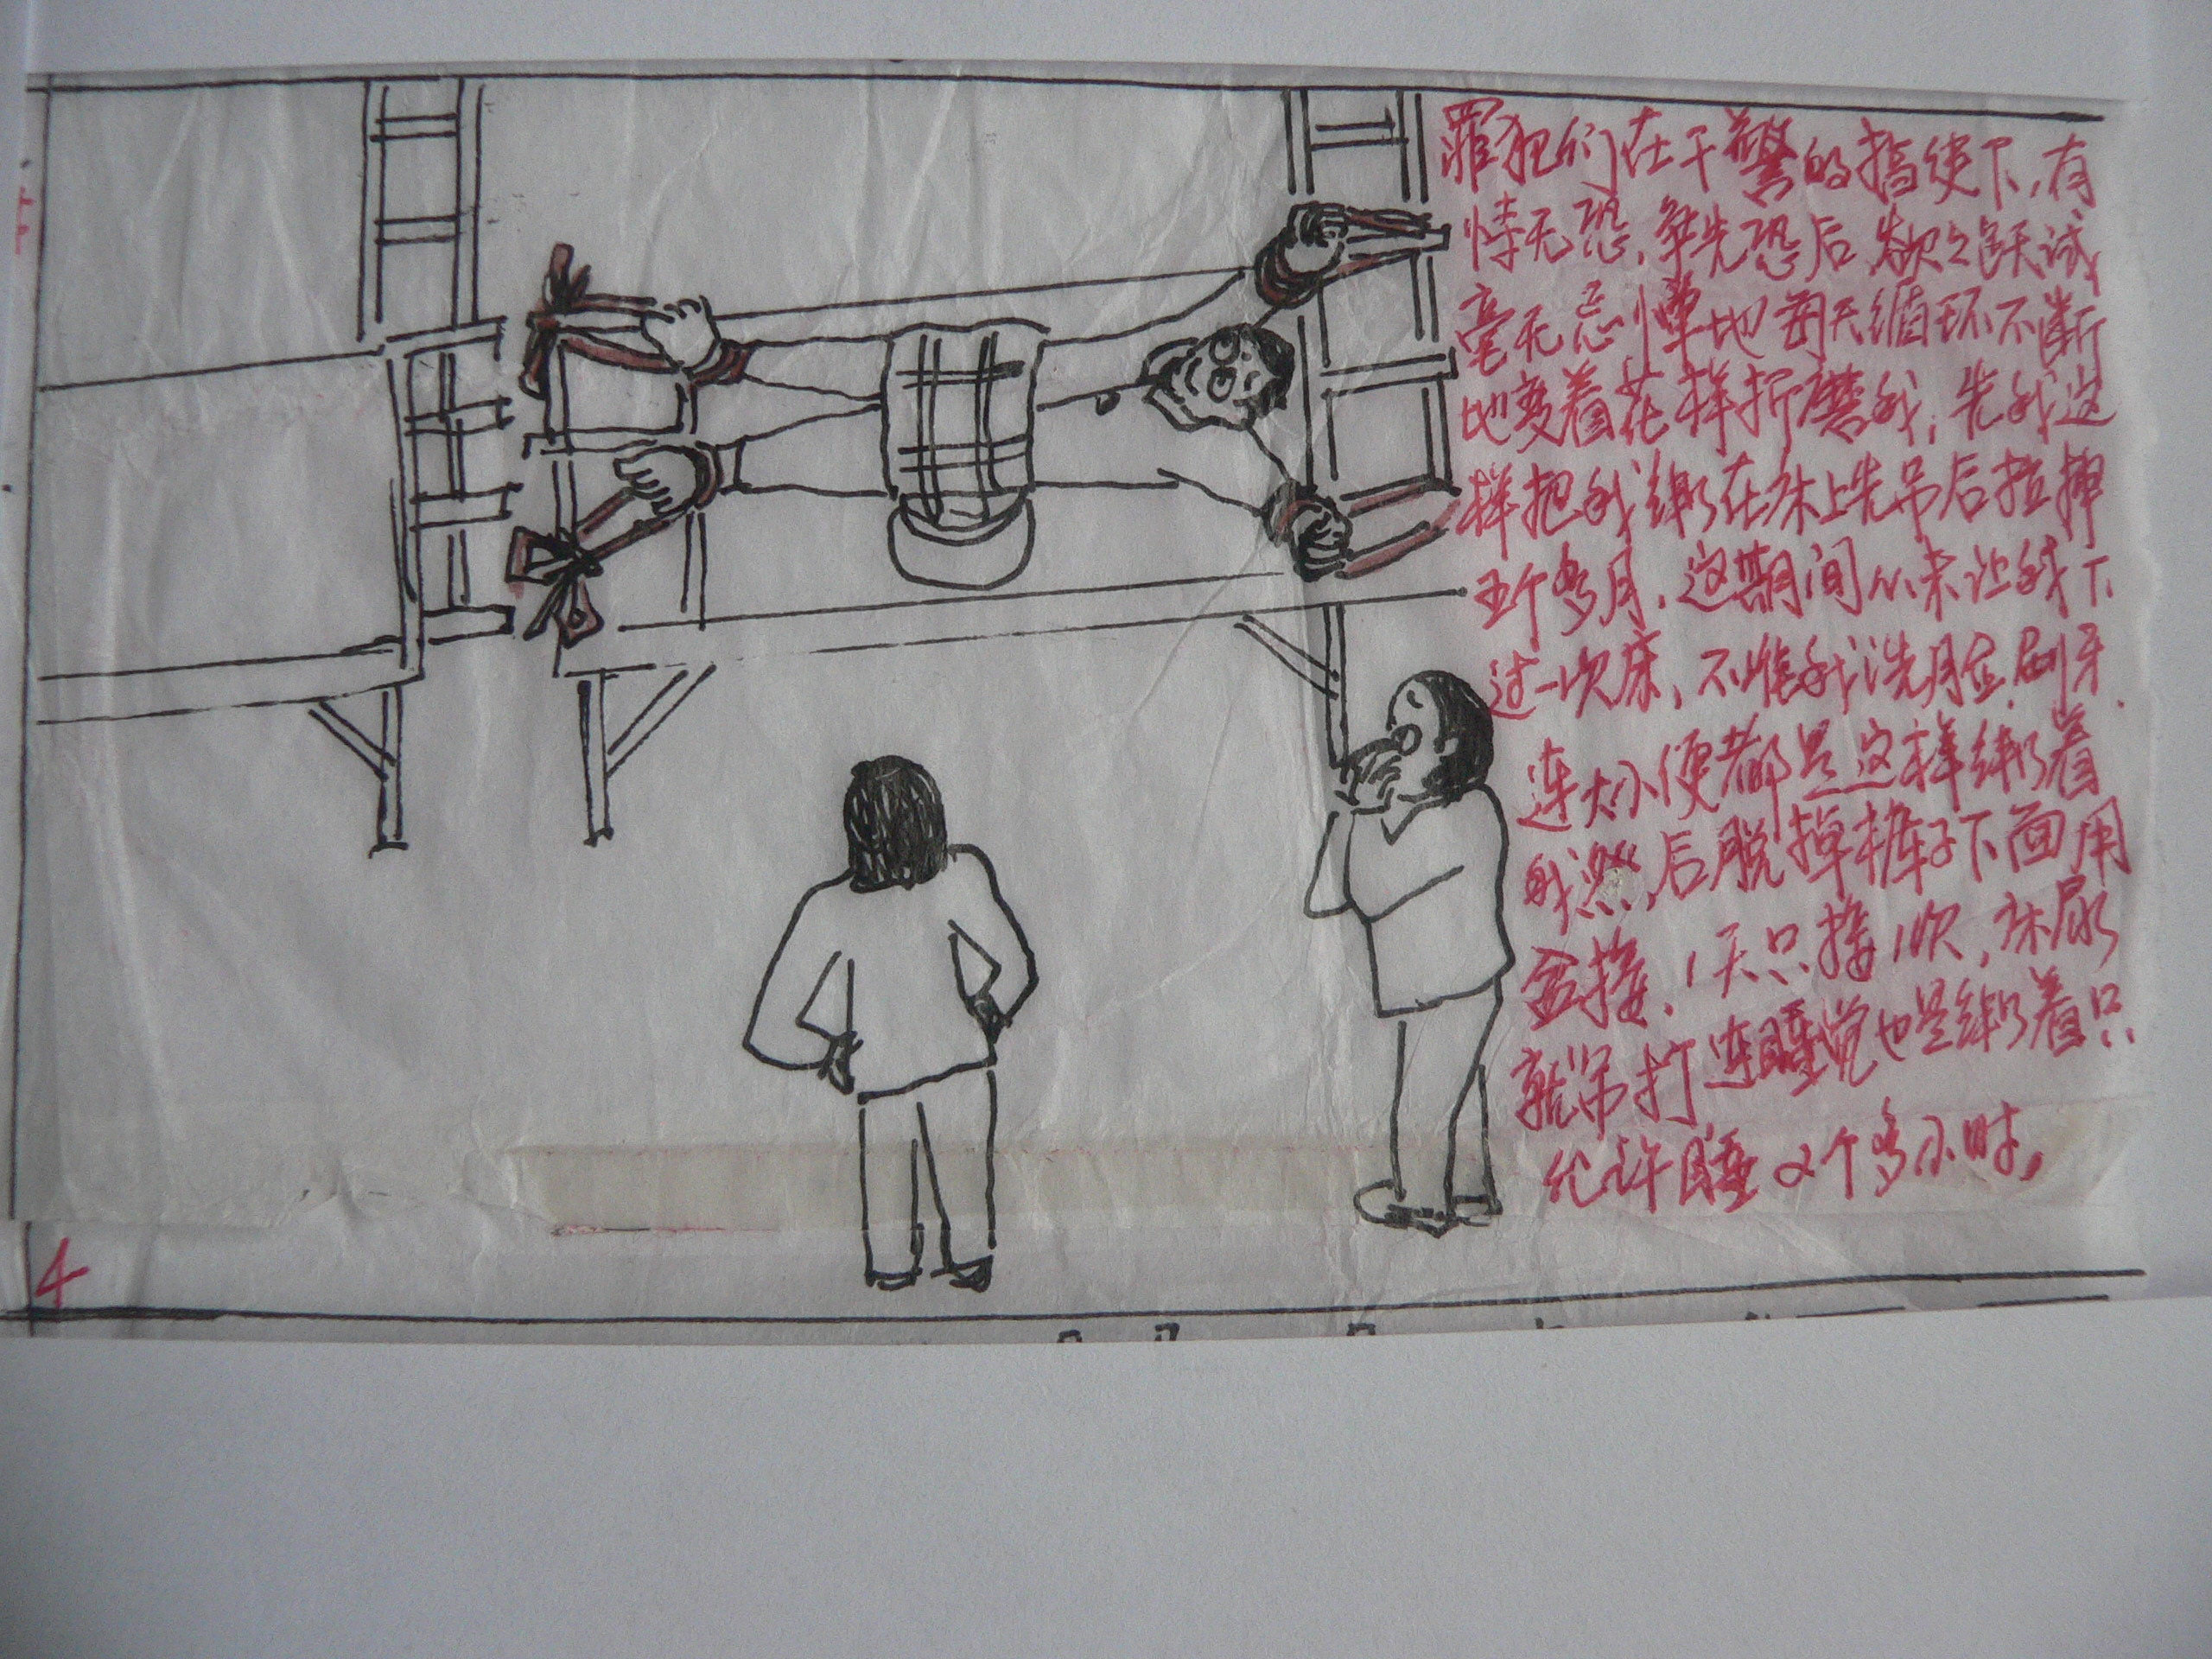 罪犯们在干警的指使下,有
恃无恐,争先恐后,欲之跃试,
毫无忌惮地每天循环不断
地变着花样折磨我,先我这
样把我绑在床上先吊后拉抻
五个多月,这期间从未让我下
过一次床,不准我洗脸刷牙.
连大小便都是这样绑着
我然后脱掉裤子下面用
盆接,1天只接1次,床尿
就吊打,连睡觉也是绑着只
允许睡2个多小时,
4